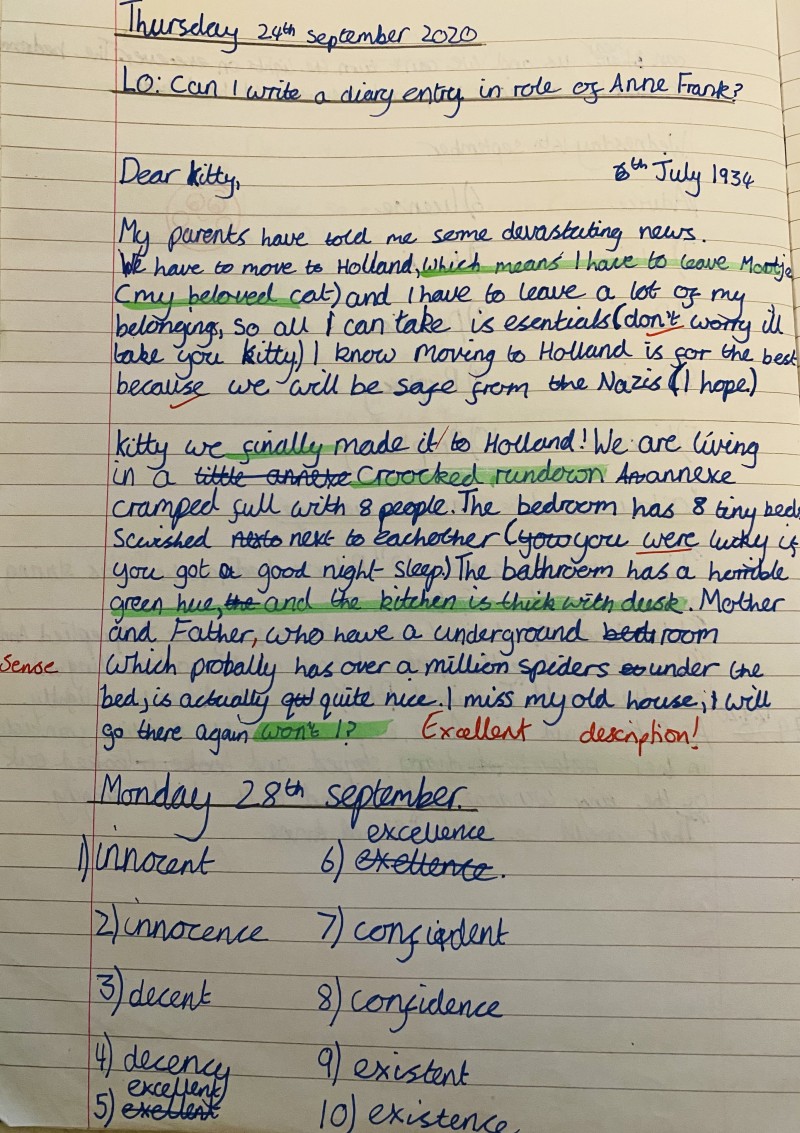 Thursday 24th september 2020
LO: Can I write a diary entry in role of Anne Frank?
Dear Kitty, 6th July 1934
My parents have told me some devastating news.
We have to move to Holland, which means I have to leave Mootje
(my beloved cat) and I have to leave a lot of my
belongings, so all I can take is esentials (don't worry ill
take you Kitty) I know moving to Holland is for the best
because we will be safe from the Nazis (I hope)
Kitty we finally made it/to Holland! We are living
in a little annexe Croocked rundown An annexe
cramped full with 8 people. The bedroom has 8 tiny beds
Scwished nexto next to eachother (you you were lucky if
you got a good night sleep) The bathroom has a horrible
green hue, the and the kitchen is thick with dusk. Mother
and Father, who have a underground bed room
Sense which probally has over a million spiders so under the
bed, is actually quite nice. I miss my old house, I will
go there again won't I? Excellent description!
Monday 28th september.
1) innocent
2) innocence
3) decent
4) decency
5) exellent excellent
6) exellence. excellence
7) confident
8) confidence
9) existent
10) existence.